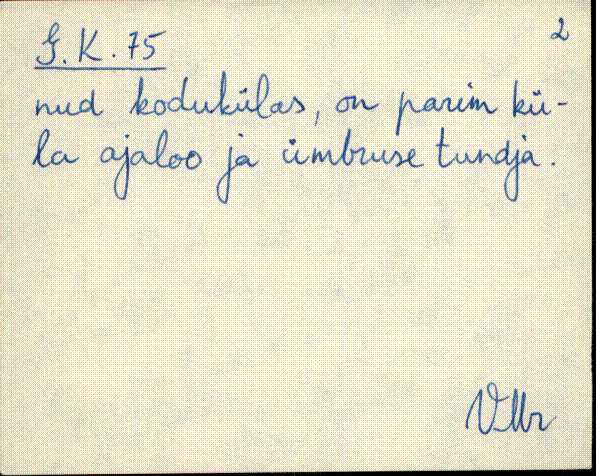 2
G. K. 75
nud kodukülas, on parim kü-
la ajaloo ja ümbruse tundja.
VMr